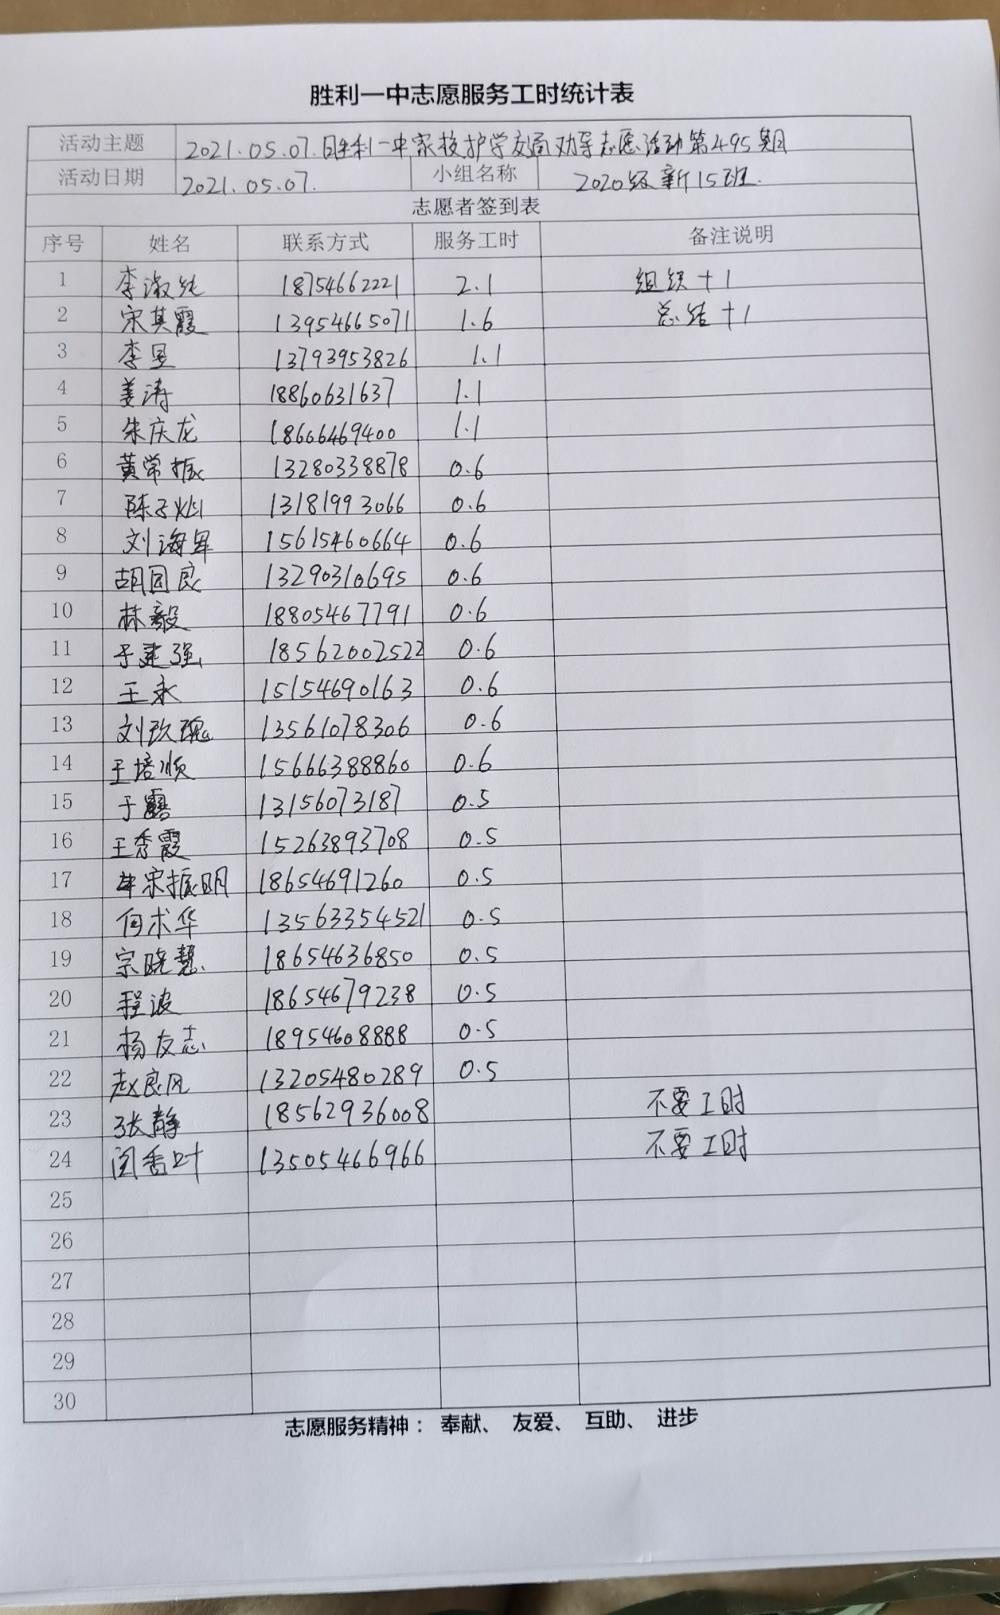 胜利一中志愿服务工时统计表
活动主题 2021.05.07.日胜利一中家校护学交通劝导志愿活动第495期
活动日期 2021.05.07. 小组名称 2020级新15班.
志愿者签到表
序号 姓名 联系方式 服务工时 备注说明
1 李淑纯 18754662221 2.1 组织+1
2 宋其霞 13954665071 1.6 总结+1
3 李昱 13793953826 1.1
4 姜涛 18860631637 1.1
5 朱庆龙 18606469400 1.1
6 黄常振 13280338878 0.6
7 陈子灿 13181993066 0.6
8 刘海军 15615460664 0.6
9 胡国良 13290310695 0.6
10 林毅 18805467791 0.6
11 于建强 18562002522 0.6
12 王永 15154690163 0.6
13 刘玫瑰 13561078306 0.6
14 王培顺 15666388860 0.6
15 于露 13156073187 0.5
16 王秀霞 15263893708 0.5
17 宋振明 18654691260 0.5
18 何术华 13563354521 0.5
19 宗晓慧 18654636850 0.5
20 程波 18654679238 0.5
21 杨友志 18954608888 0.5
22 赵良风 13205480289 0.5
23 张静 18562936008 不要工时
24 闵香叶 13505466966 不要工时
25
26
27
28
29
30
志愿服务精神： 奉献、 友爱、 互助、 进步